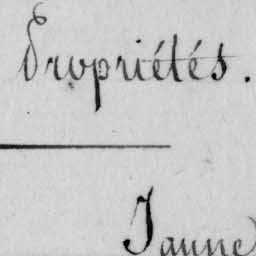 Propriétés.
Jaune